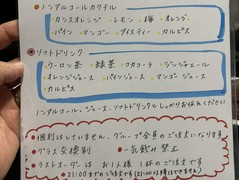 ・ノンアルコールカクテル
・カシスオレンジ ・レモン ・梅 ・オレンジ
・パイン ・マンゴー ・アイスティー ・カルピス
・ソフトドリンク
・ウーロン茶 ・緑茶 ・コカコーラ ・ジンジャエール
・オレンジジュース ・パインジュース ・マンゴージュース
・カルピス
ノンアルコール、ジュース、ソフトドリンクも
・個別はしていません、グループ全員のご注文になります
・グラス交換制 ・一気飲み禁止
・ラストオーダーは お1人様 1杯のご注文です
*21:00までのご注文です